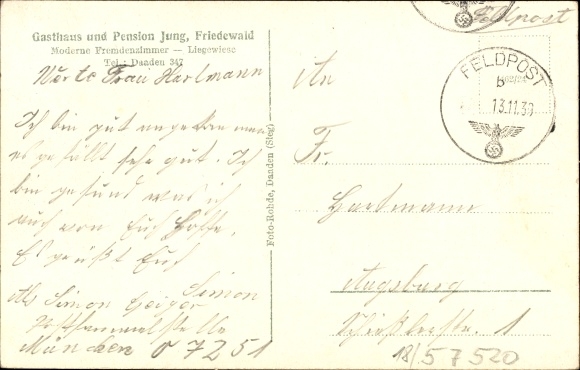 Gasthaus und Pension Jung, Friedewald
Moderne Fremdenzimmer — Liegewiese
Tel.: Daaden 347
Werte Frau Hartmann
Ich bin gut angekommen
es gefällt sehr gut. Ich
bin gesund was ich
auch von Euch hoffe.
Es grüßt Euch
Simon
Simon Geiger
München 07251
Foto-Rohde, Daaden (Sieg)
Feldpost
FELDPOST
b
13.11.39
An
Fr.
Hartmann
Augsburg
1
18/57520